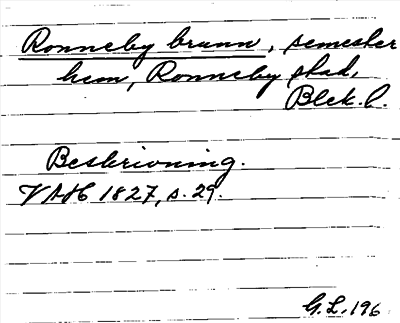 Ronneby brunn, semester
hem, Ronneby stad,
Blek. l.
Beskrivning.
VAH 1827, s. 29.
G.L. 196